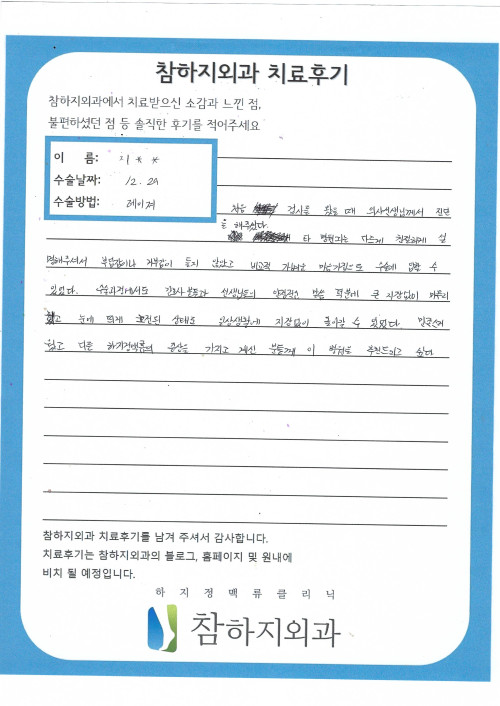 참하지외과 치료후기
참하지외과에서 치료받으신 소감과 느낀 점,
불편하셨던 점 등 솔직한 후기를 적어주세요
이 름: 지 * *
수술날짜: 12. 29
수술방법: 레이저
처음 검사를 왔을 때 의사선생님께서 진단
을 해주셨다.
타 병원과는 다르게 친절하게 설
명해주셔서 부담감이나 거부감이 들지 않았고 비교적 가벼운 마음가짐으로 수술에 임할 수
있었다. 수술과정에서도 간호사 분들과 선생님들의 덕분에 큰 지장없이 마무리
했고 눈에 띄게 호전된 상태로 일상생활에 지장없이 돌아갈 수 있었다.
하고 다른 하지정맥류의 증상을 가지고 계신 분들께 이 병원을 추천드리고 싶다
참하지외과 치료후기를 남겨 주셔서 감사합니다.
치료후기는 참하지외과의 블로그, 홈페이지 및 원내에
비치 될 예정입니다.
하 지 정 맥 류 클 리 닉
참하지외과